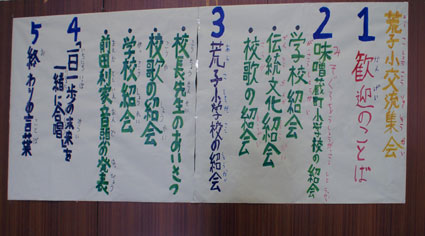 荒子小交流集会
1 歓迎のことば
2 味噌蔵町小学校の紹会
・学校紹会
・伝統文化紹会
・校歌の紹会
3 荒子小学校の紹会
・校長先生のあいさつ
・校歌の紹会
・学校紹会
・前田利家音頭の発表
4 「一日一歩の未来を一緒に合唱
5 終わりの言葉